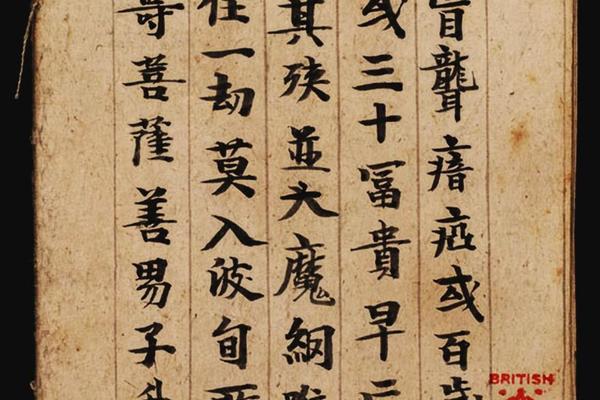 盲聾瘖瘂或百
或三十冨貴早
其殃並大魔網
住一劫莫入波旬
等菩薩善男子
BRITISH